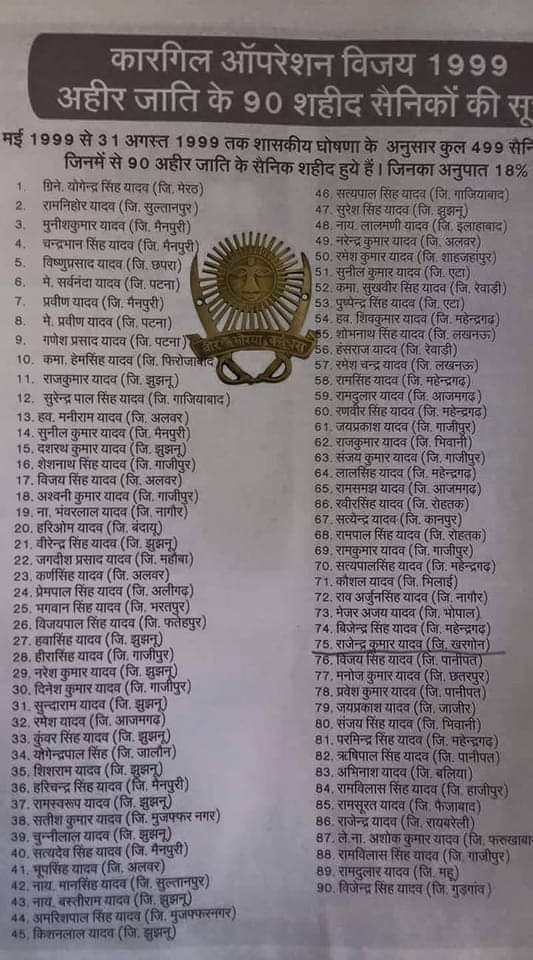 कारगिल ऑपरेशन विजय 1999
अहीर जाति के 90 शहीद सैनिकों की
मई 1999 से 31 अगस्त 1999 तक शासकीय घोषणा के अनुसार कुल 499
जिनमें से 90 अहीर जाति के सैनिक शहीद हुये हैं। जिनका अनुपात 18%
1. ग्रिने. योगेन्द्र सिंह यादव (जि. मेरठ)
2. रामनिहोर यादव (जि. सुल्तानपुर)
3. मुनीशकुमार यादव (जि. मैनपुरी)
4. चन्द्रभान सिंह यादव (जि. मैनपुरी)
5. विष्णुप्रसाद यादव (जि. छपरा)
6. मे. सर्वनंदा यादव (जि. पटना)
7. प्रवीण यादव (जि. मैनपुरी)
8. मे. प्रवीण यादव (जि. पटना)
9. गणेश प्रसाद यादव (जि. पटना)
10. कमा. हेमसिंह यादव (जि. फिरोजाबाद
11. राजकुमार यादव (जि. झुझनू)
12. सुरेन्द्र पाल सिंह यादव (जि. गाजियाबाद)
13. हव. मनीराम यादव (जि. अलवर)
14. सुनील कुमार यादव (जि. मैनपुरी)
15. दशरथ कुमार यादव (जि. झुझनू)
16. शेशनाथ सिंह यादव (जि. गाजीपुर)
17. विजय सिंह यादव (जि. अलवर)
18. अश्वनी कुमार यादव (जि. गाजीपुर)
19. ना. भंवरलाल यादव (जि. नागौर)
20. हरिओम यादव (जि. बंदायू)
21. वीरेन्द्र सिंह यादव (जि. झुझनू)
22. जगदीश प्रसाद यादव (जि. महौबा)
23. कर्णसिंह यादव (जि. अलवर)
24. प्रेमपाल सिंह यादव (जि. अलीगढ़)
25. भगवान सिंह यादव (जि. भरतपुर)
26. विजयपाल सिंह यादव (जि. फतेहपुर)
27. हवासिंह यादव (जि. झुझनू)
28. हीरासिंह यादव (जि. गाजीपुर)
29. नरेश कुमार यादव (जि. झुझनू)
30. दिनेश कुमार यादव (जि. गाजीपुर)
31. सुन्दाराम यादव (जि. झुझनू)
32. रमेश यादव (जि. आजमगढ़)
33. कुंवर सिंह यादव (जि. झुझनू)
34. योगेन्द्रपाल सिंह यादव (जि. जालौन)
35. शिशराम यादव (जि. झुझनू)
36. हरिचन्द्र सिंह यादव (जि. मैनपुरी)
37. रामस्वरूप यादव (जि. झुझनू)
38. सतीश कुमार यादव (जि. मुजफ्फर नगर)
39. चुन्नीलाल यादव (जि. झुझनू)
40. सत्यदेव सिंह यादव (जि. मैनपुरी)
41. भूपसिंह यादव (जि. अलवर)
42. नाय. मानसिंह यादव (जि. सुल्तानपुर)
43. नाय. बस्तीराम यादव (जि. झुझनू)
44. अमरिशपाल सिंह यादव (जि. मुजफ्फरनगर)
45. किशनलाल यादव (जि. झुझनू)
46. सत्यपाल सिंह यादव (जि. गाजियाबाद)
47. सुरेश सिंह यादव (जि. झुझनू)
48. नाय. लालमणी यादव (जि. इलाहाबाद)
49. नरेन्द्र कुमार यादव (जि. अलवर)
50. रमेश कुमार यादव (जि. शाहजहांपुर)
51. सुनील कुमार यादव (जि. एटा)
52. कमा. सुखवीर सिंह यादव (जि. रेवाड़ी)
53. पुष्पेन्द्र सिंह यादव (जि. एटा)
54. हव. शिवकुमार यादव (जि. महेन्द्रगढ़)
55. शोभनाथ सिंह यादव (जि. लखनऊ)
56. हंसराज यादव (जि. रेवाड़ी)
57. रमेश चन्द्र यादव (जि. लखनऊ)
58. रामसिंह यादव (जि. महेन्द्रगढ़)
59. रामदुलार यादव (जि. आजमगढ़)
60. रणवीर सिंह यादव (जि. महेन्द्रगढ़)
61. जयप्रकाश यादव (जि. गाजीपुर)
62. राजकुमार यादव (जि. भिवानी)
63. संजय कुमार यादव (जि. गाजीपुर)
64. लालसिंह यादव (जि. महेन्द्रगढ़)
65. रामसमझ यादव (जि. आजमगढ़)
66. रवीरसिंह यादव (जि. रोहतक)
67. सत्येन्द्र यादव (जि. कानपुर)
68. रामपाल सिंह यादव (जि. रोहतक)
69. रामकुमार यादव (जि. गाजीपुर)
70. सत्यपालसिंह यादव (जि. महेन्द्रगढ़)
71. कौशल यादव (जि. भिलाई)
72. राव अर्जुनसिंह यादव (जि. नागौर)
73. मेजर अजय यादव (जि. भोपाल)
74. बिजेन्द्र सिंह यादव (जि. महेन्द्रगढ़)
75. राजेन्द्र कुमार यादव (जि. खरगोन)
76. विजय सिंह यादव (जि. पानीपत)
77. मनोज कुमार यादव (जि. छतरपुर)
78. प्रवेश कुमार यादव (जि. पानीपत)
79. जयप्रकाश यादव (जि. जाजीर)
80. संजय सिंह यादव (जि. भिवानी)
81. परमिन्द्र सिंह यादव (जि. महेन्द्रगढ़)
82. ऋषिपाल सिंह यादव (जि. पानीपत)
83. अभिनाश यादव (जि. बलिया)
84. रामविलास सिंह यादव (जि. हाजीपुर)
85. रामसूरत यादव (जि. फैजाबाद)
86. राजेन्द्र यादव (जि. रायबरेली)
87. ले.ना. अशोक कुमार यादव (जि. फरुखाबा
88. रामविलास सिंह यादव (जि. गाजीपुर)
89. रामदुलार यादव (जि. महू)
90. विजेन्द्र सिंह यादव (जि. गुड़गांव)